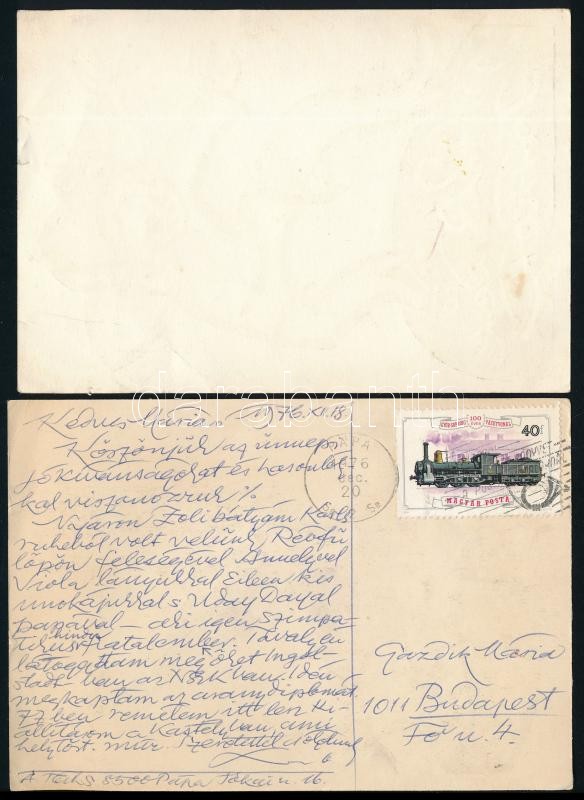 darabanth
Kedves Máriám 1976 XII. 18.
Köszönjük az ünnepi
jókívánságokat és hasonlók
kal viszonozzuk %
Nyáron Zoli bátyám Karls
ruheből volt velünk Révfü
löpön feleségével Annelyvel
Viola lányukkal Eileen kis
unokájukkal s Uday Dayal
papával – aki igen szimpa
tikus hindu fiatalember. Tavaly én
látogattam meg őket Ingol
stadtban az NSZKban. Idén
megkaptam az aranydiplomát
77ben remélem itt lesz ki
állításom a kastélyban, ami
helytört. múz. Szeretettel
A 8500 Pápa Jókai u. 16.
GYŐR SOPRON 100 ÉVES EBENFURTI VASÚTVONAL
40f
MAGYAR POSTA
PÁPA
1976
DEC.
20
Gazdik Mária
1011 Budapest
Fő u. 4.